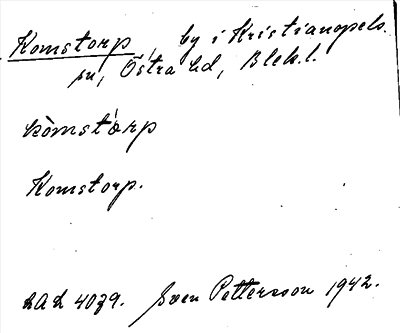 Komstorp, by i Kristianopels
sn, Östra hd, Blek. l.
kòmstàrp
Komstorp.
LAL 4039. Sven Pettersson 1942.